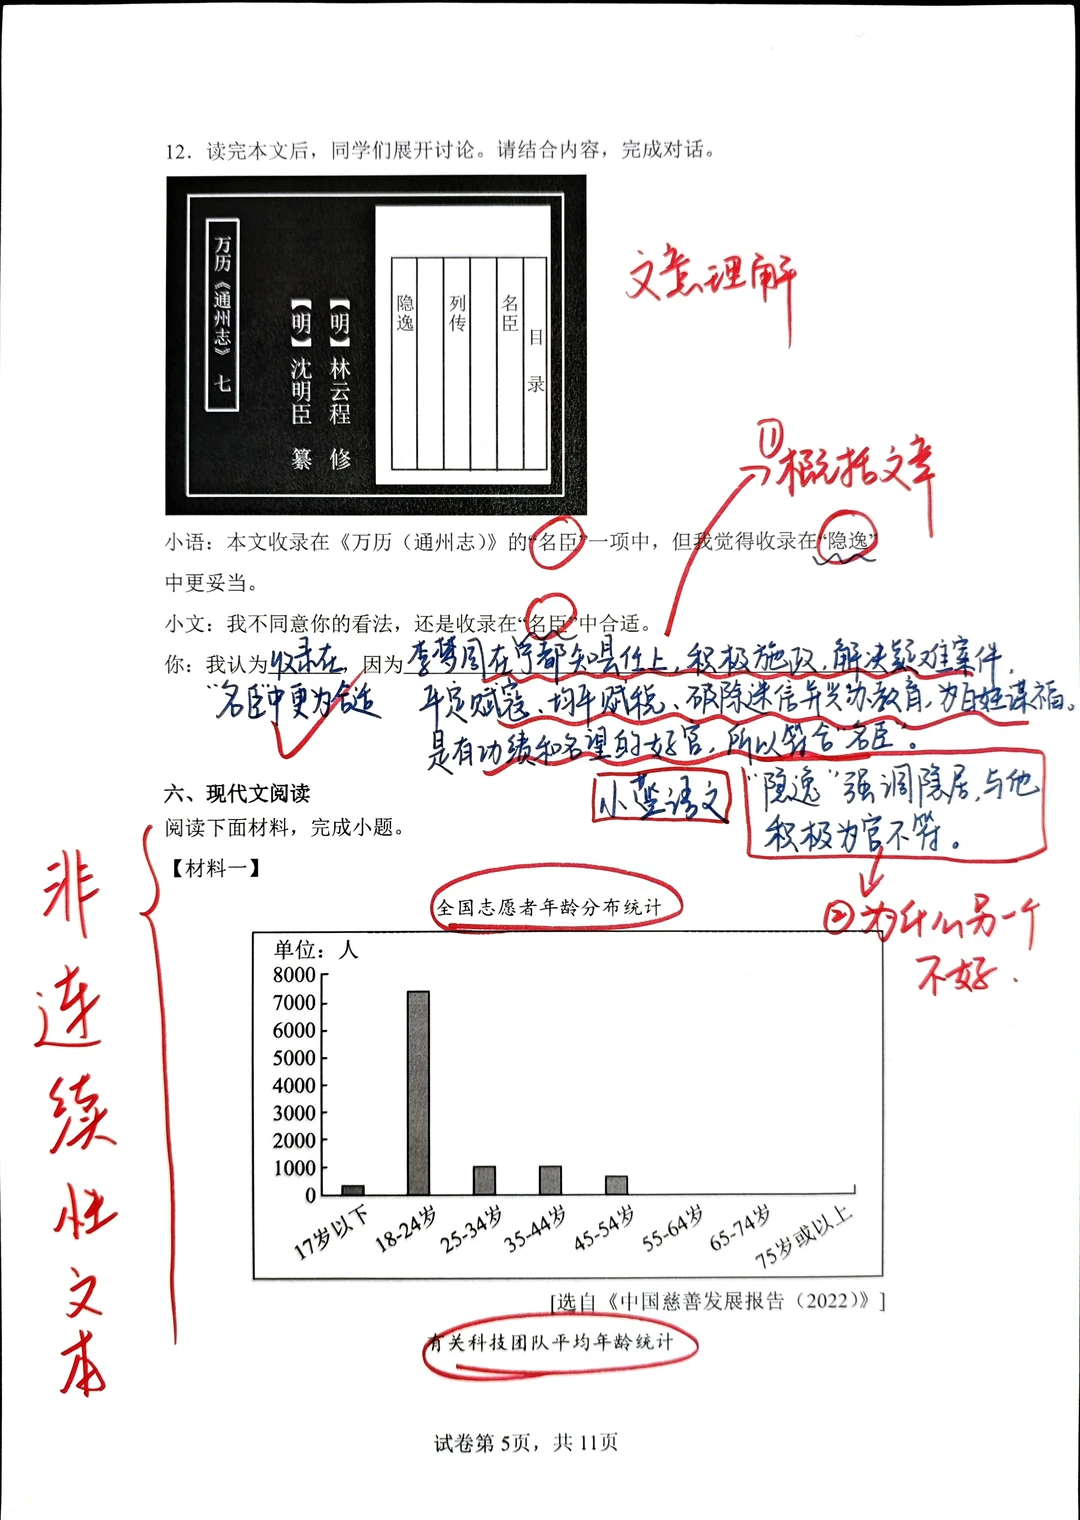 12．读完本文后，同学们展开讨论。请结合内容，完成对话。
万历《通州志》 七
【明】林云程 修
【明】沈明臣 纂
目录
名臣
列传
隐逸
文意理解
①概括文章
小语：本文收录在《万历（通州志）》的“名臣”一项中，但我觉得收录在“隐逸”
中更妥当。
小文：我不同意你的看法，还是收录在“名臣”中合适。
你：我认为收录在，因为李梦周在宁都知县任上，积极施政，解决疑难案件，
“名臣中更为合适 平定贼寇、均平赋税、破除迷信并兴办教育，为百姓谋福。
是有功绩和名望的好官，所以符合“名臣”。
小莲语文
“隐逸”强调隐居，与他
积极为官不符。
②为什么另一个
不好.
六、现代文阅读
阅读下面材料，完成小题。
【材料一】
非连续性文本
全国志愿者年龄分布统计
单位：人
8000
7000
6000
5000
4000
3000
2000
1000
0
17岁以下 18-24岁 25-34岁 35-44岁 45-54岁 55-64岁 65-74岁 75岁或以上
[选自《中国慈善发展报告（2022）》]
有关科技团队平均年龄统计
试卷第 5页，共 11页